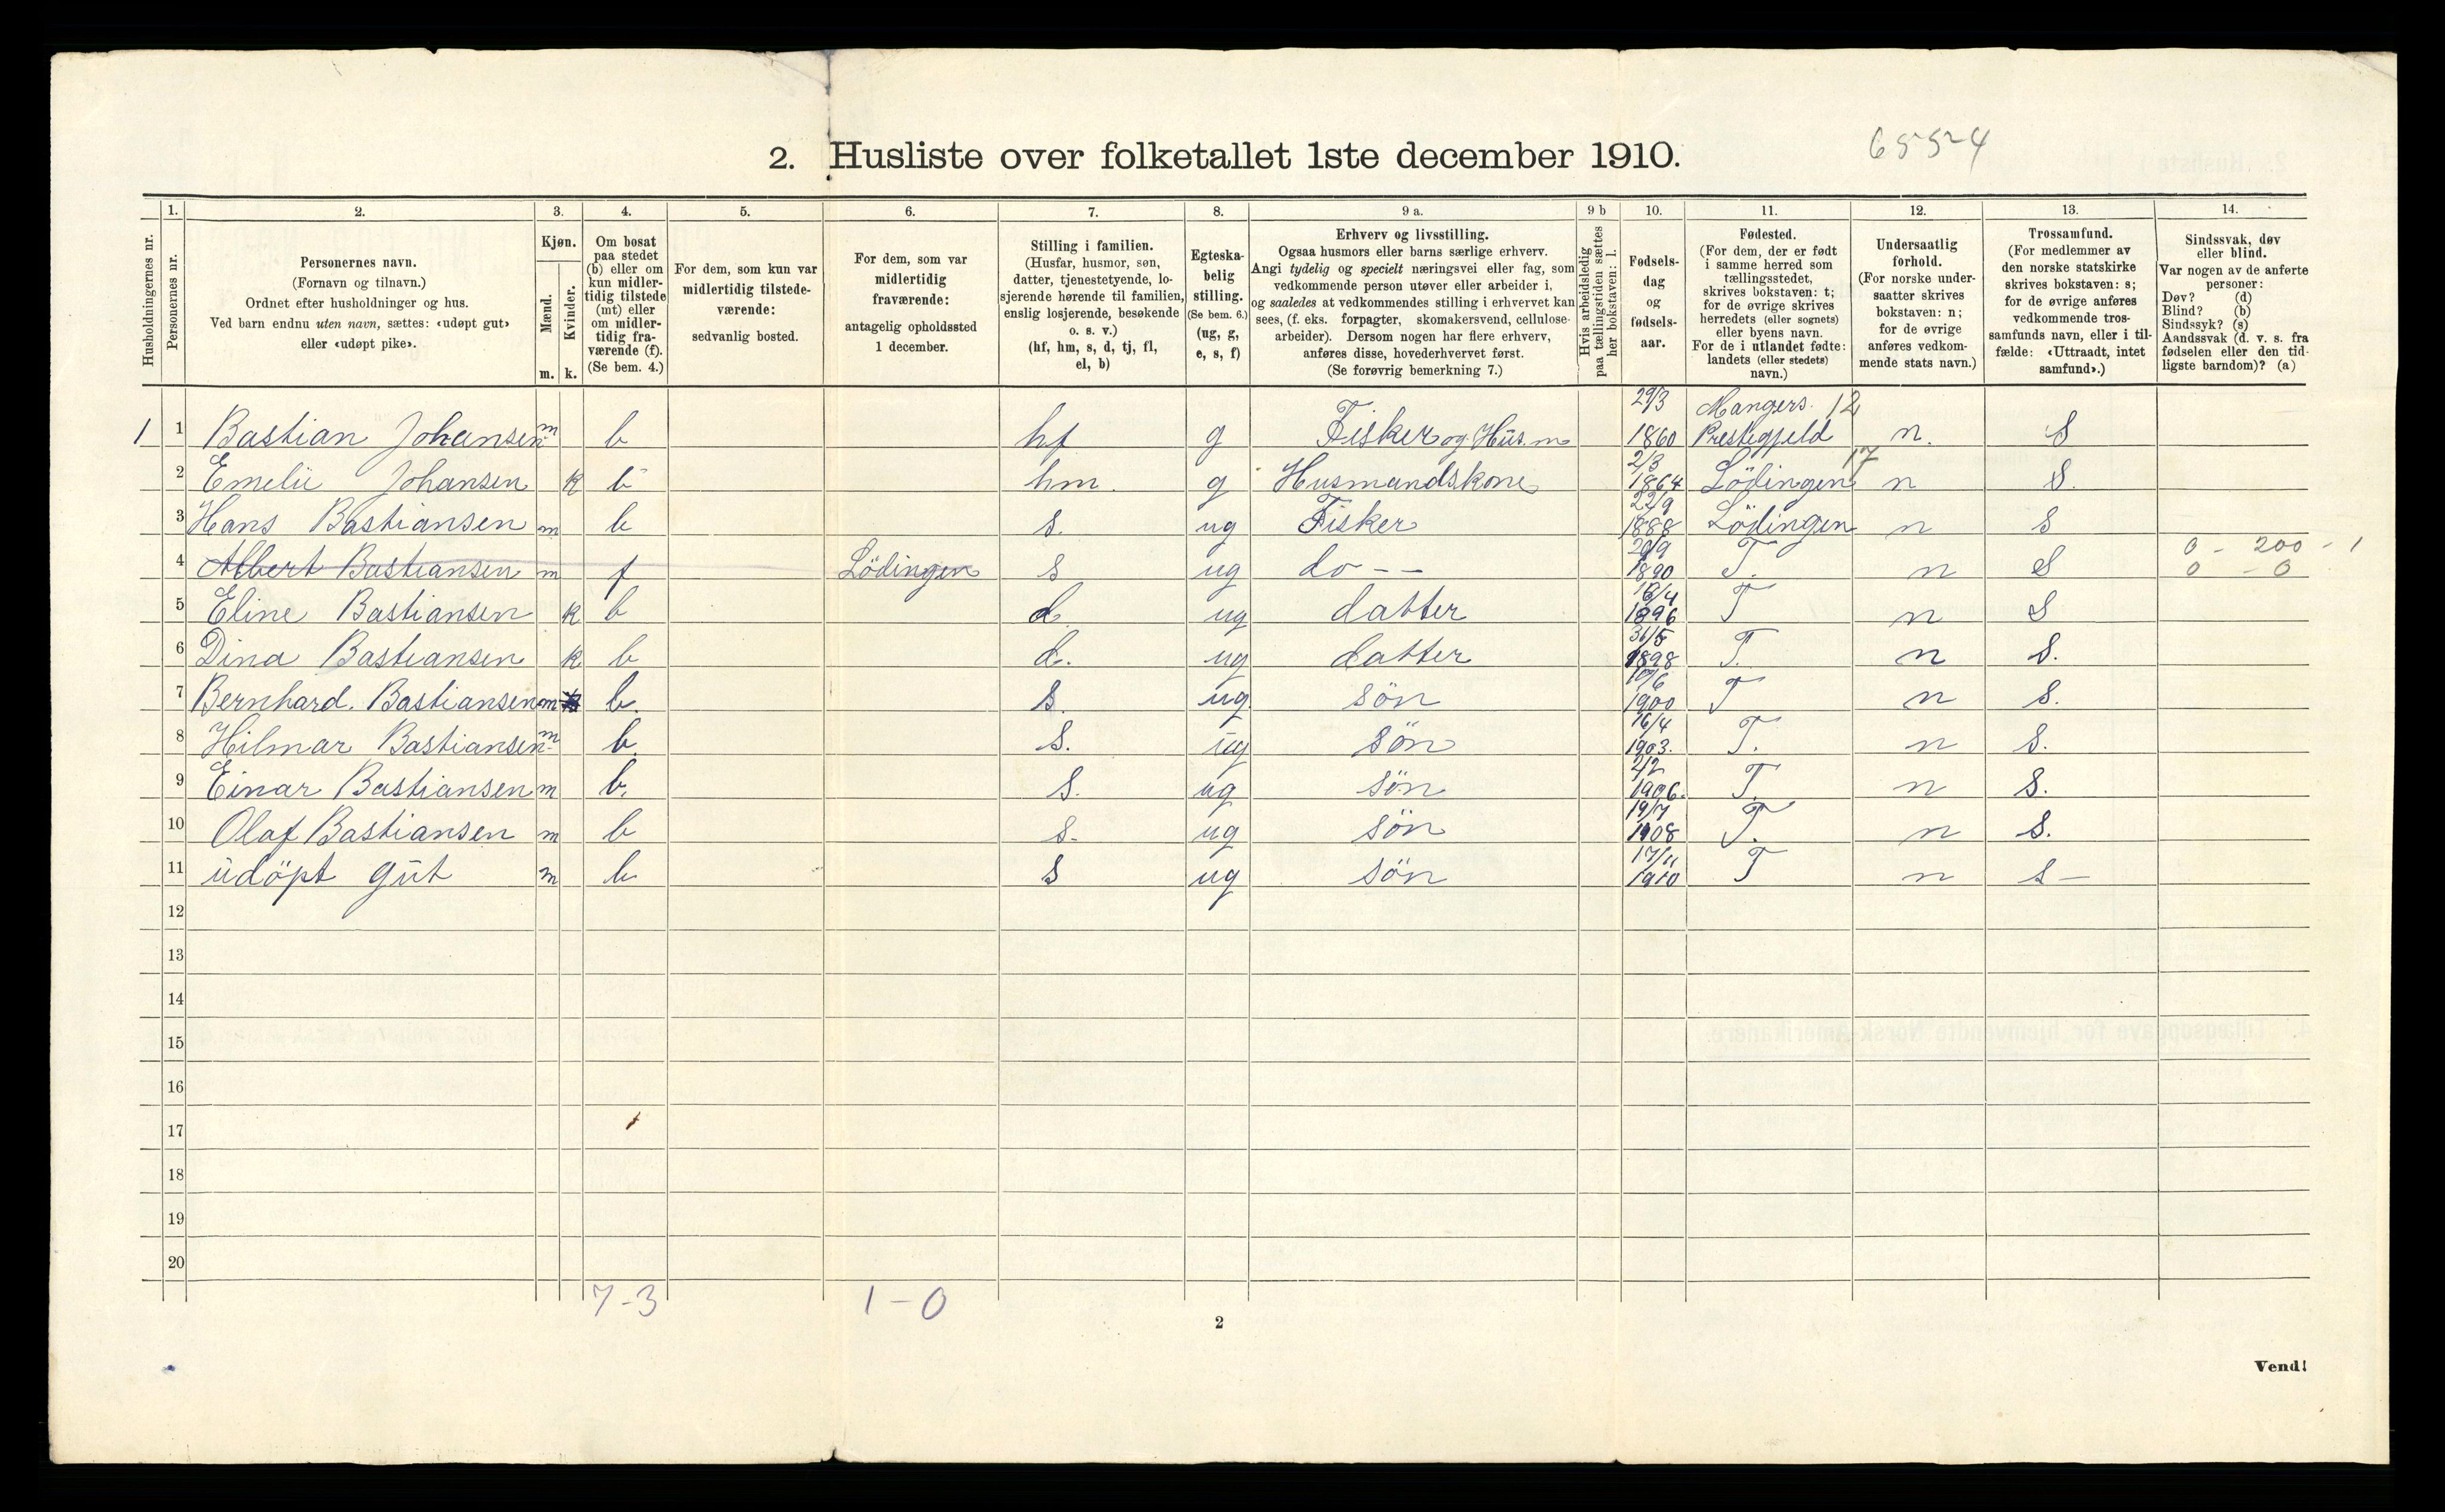 2. Husliste over folketallet 1ste december 1910.
6554
Husholdningernes nr.
1.
Personernes nr.
2.
Personernes navn.
(Fornavn og tilnavn.)
Ordnet efter husholdninger og hus.
Ved barn endnu uten navn, sættes: «udøpt gut»
eller «udøpt pike».
3.
Kjøn.
Mænd.
Kvinder.
m. k.
4.
Om bosat
paa stedet
(b) eller om
kun midler-
tidig tilstede
(mt) eller
om midler-
tidig fra-
værende (f).
(Se bem. 4.)
5.
For dem, som kun var
midlertidig tilstede-
værende:
sedvanlig bosted.
6.
For dem, som var
midlertidig
fraværende:
antagelig opholdssted
1 december.
7.
Stilling i familien.
(Husfar, husmor, søn,
datter, tjenestetyende, lo-
sjerende hørende til familien,
enslig losjerende, besøkende
o. s. v.)
(hf, hm, s, d, tj, fl,
el, b)
8.
Egteska-
belig
stilling.
(Se bem. 6.)
(ug, g,
e, s, f)
9 a.
Erhverv og livsstilling.
Ogsaa husmors eller barns særlige erhverv.
Angi tydelig og specielt næringsvei eller fag, som
vedkommende person utøver eller arbeider i,
og saaledes at vedkommendes stilling i erhvervet kan
sees, (f. eks. forpagter, skomakersvend, cellulose-
arbeider). Dersom nogen har flere erhverv,
anføres disse, hovederhvervet først.
(Se forøvrig bemerkning 7.)
9 b
Hvis arbeidsledig
paa tællingstiden sættes
her bokstaven: l.
10.
Fødsels-
dag
og
fødsels-
aar.
11.
Fødested.
(For dem, der er født
i samme herred som
tællingsstedet,
skrives bokstaven: t;
for de øvrige skrives
herredets (eller sognets)
eller byens navn.
For de i utlandet fødte:
landets (eller stedets)
navn.)
12.
Undersaatlig
forhold.
(For norske under-
saatter skrives
bokstaven: n;
for de øvrige
anføres vedkom-
mende stats navn.)
13.
Trossamfund.
(For medlemmer av
den norske statskirke
skrives bokstaven: s;
for de øvrige anføres
vedkommende tros-
samfunds navn, eller i til-
fælde: «Uttraadt, intet
samfund».)
14.
Sindssvak, døv
eller blind.
Var nogen av de anførte
personer:
Døv? (d)
Blind? (b)
Sindssyk? (s)
Aandssvak (d. v. s. fra
fødselen eller den tid-
ligste barndom)? (a)
1 1 Bastian Johansen m b hf g Fisker og Husm 29/3 1860 Mangers 12 Prestegjeld n. S
2 Emelie Johansen k b hm. g Husmandskone 2/3 1864 Lödingen 17 n S.
3 Hans Bastiansen m b s. ug Fisker 22/9 1888 Lödingen n S
4 Albert Bastiansen m f Lödingen s ug do -- 20/9 1890 T. n S 0 - 200 - 1
0 - 0
5 Eline Bastiansen k b d. ug datter 18/4 1896 T n S
6 Dina Bastiansen k b d. ug datter 31/5 1898 T. n S.
7 Bernhard. Bastiansen m b. s. ug søn 10/6 1900 T n S.
8 Hilmar Bastiansen m b. s. ug sön 16/4 1903. T. n S.
9 Einar Bastiansen m b. s. ug sön 2/2 1906. T. n S.
10 Olaf Bastiansen m b s. ug sön 19/7 1908 T. n S.
11 udöpt gut m b s ug sön 17/11 1910 T n s -
12
13
14
15
16
17
18
19
20
7-3
1-0
2
Vend!